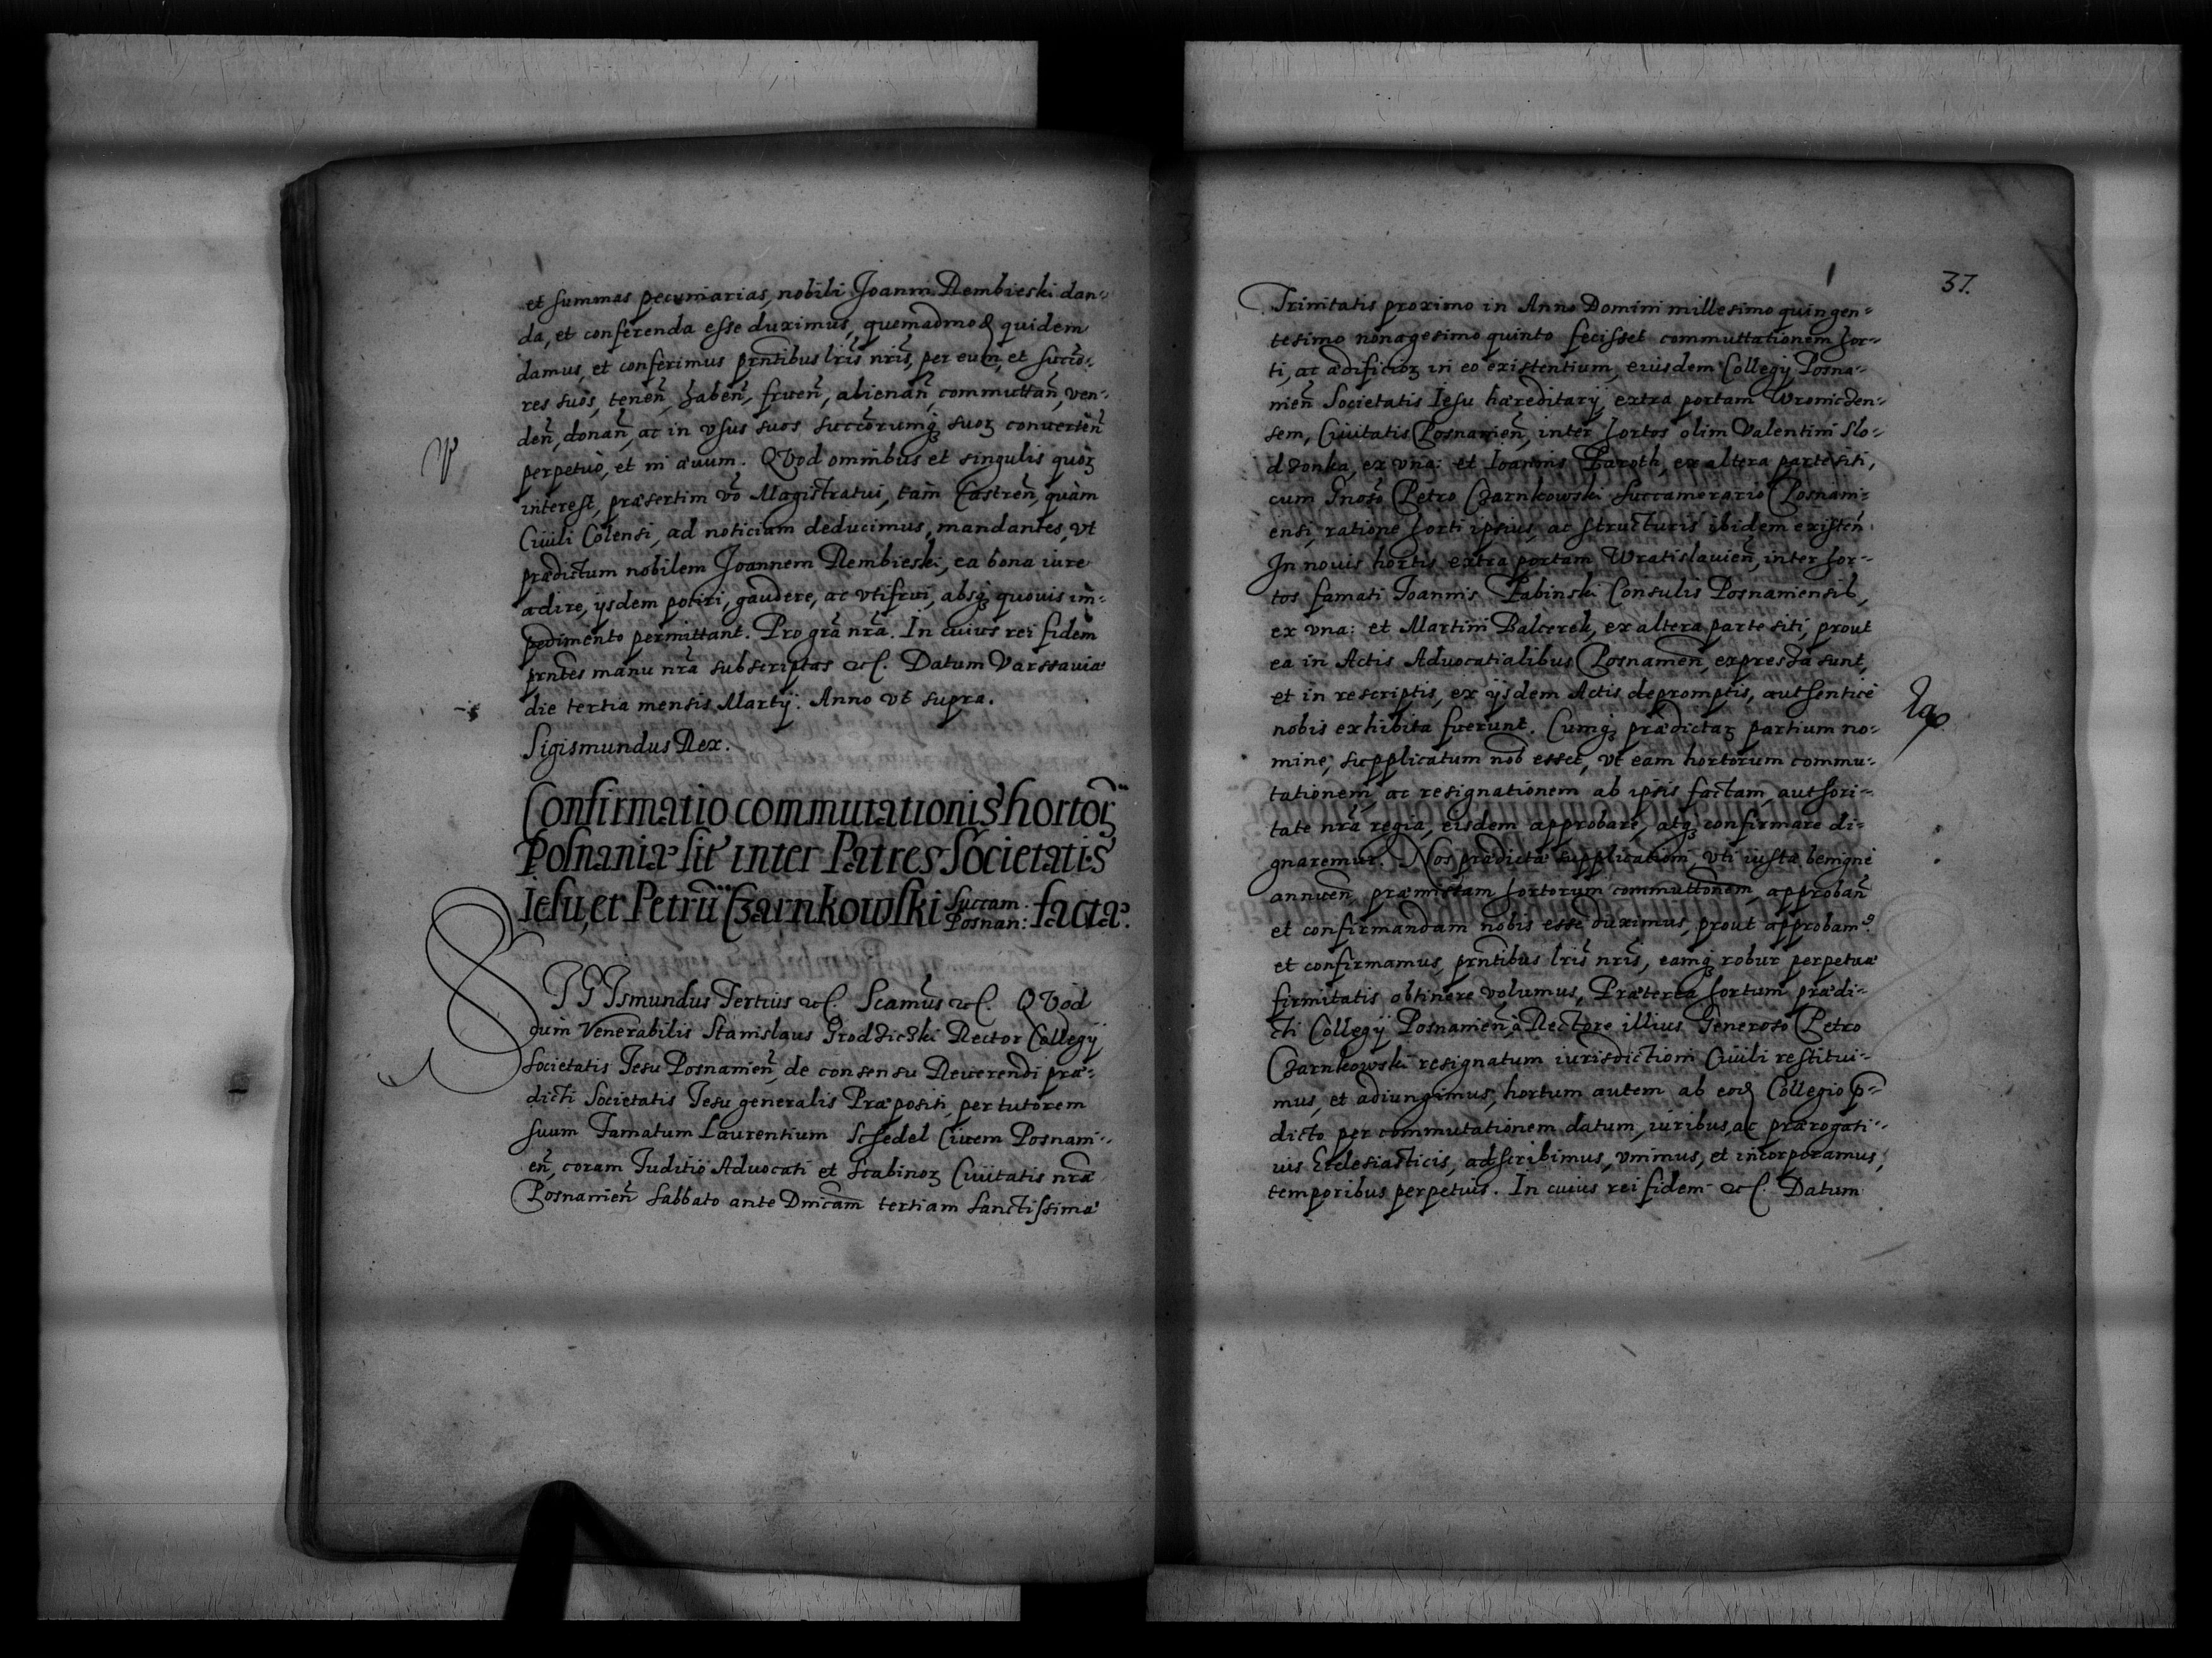 et summas pecuniarias, nobili Joanni Rembieski dan-
da, et conferenda esse duximus, quemadmod quidem
damus, et conferimus prñtibus lris nris, per eum, et succo-
res suos, teneñ, habeñ, frueñ, alienañ, commuttañ, ven-
deñ, donañ, ac in vsus suos succorumqȝ suoȝ conuerteñ
perpetuò, et in æuum. QVod omnibus et singulis quoȝ
interest, præsertim vo Magistratui, tam Castreñ, quàm
Ciuili Colensi, ad noticiam deducimus, mandantes, vt
prædictum nobilem Joannem Rembieski, ea bona iure
adire, ijsdem potiri, gaudere, ac vtifrui, absqȝ quouis im-
pedimento permittant. Pro gra nra. In cuius rei fidem
prñtes manu nra subscriptas &c. Datum Varssauiæ
die tertia mensis Martij. Anno vt supra.
Sigismundus Rex.
Confirmatio commutationis hortoȝ
Posnaniæ sit inter Patres Societatis
Iesu, et Petrũ Czarnkowski Succam. Posnan: facta.
SIGIsmundus Tertius &c. Scamus &c. QVod
cum Venerabilis Stanislaus Grodzicski Rector Collegij
Societatis Jesu Posnanieñ, de consensu Reuerendi præ-
dicti Societatis Jesu generalis Præpositi, per tutorem
suum Famatum Laurentium Schedel Ciuem Posnani-
eñ, coram Juditio Aduocati et Scabinoȝ Ciuitatis nræ
Posnanieñ Sabbato ante Dnicam tertiam Sanctissimæ
37.
Trinitatis proximo in Anno Domini millesimo quingen-
tesimo nonagesimo quinto fecisset commuttationem hor-
ti, ac ædificioȝ in eo existentium, eiusdem Collegij Posna-
nieñ Societatis Iesu hæreditarij, extra portam Wronicden-
sem, Ciuitatis Posnanieñ, inter hortos olim Valentini Slo-
dzonka, ex vna: et Joannis Paroth, ex altera parte siti,
cum Gnoso Petro Czarnkowski Succamerario Posnani-
ensi, ratione horti ipsius, ac structuris ibidem existeñ
In nouis hortis extra portam Wratislauieñ, inter hor-
tos famati Joannis Rabinski Consulis Posnaniensis,
ex vna: et Martini Balcerek, ex altera parte siti, prout
ea in Actis Aduocatialibus Posnanieñ, expressa sunt,
et in rescriptis, ex ijsdem Actis depromptis, authenticè
nobis exhibita fuerunt. Cumqȝ prædictaȝ partium no-
mine, supplicatum nob esset, vt eam hortorum commu-
tationem, ac resignationem ab ipsis factam, authori-
tate nra regia, eisdem approbare, atqȝ confirmare di-
gnaremur. Nos prædictæ supplicationi, vti iustæ benignè
annueñ, præmissam hortorum commuttonem, approbañ
et confirmandam nobis esse duximus, prout approbam9
et confirmamus, prñtibus lris nris, eamqȝ robur perpetuæ
firmitatis obtinere volumus, Præterea hortum prædi-
cti Collegij Posnanieñ à Rectore illius Generoso Petro
Czarnkowski resignatum iurisdictioni Ciuili restitui-
mus, et adiungimus, hortum autem ab eod Collegio p-
dicto per commutationem datum, iuribus, ac prærogati-
uis Ecclesiasticis, adscribimus, vnimus, et incorporamus,
temporibus perpetuis. In cuius rei fidem &c. Datum